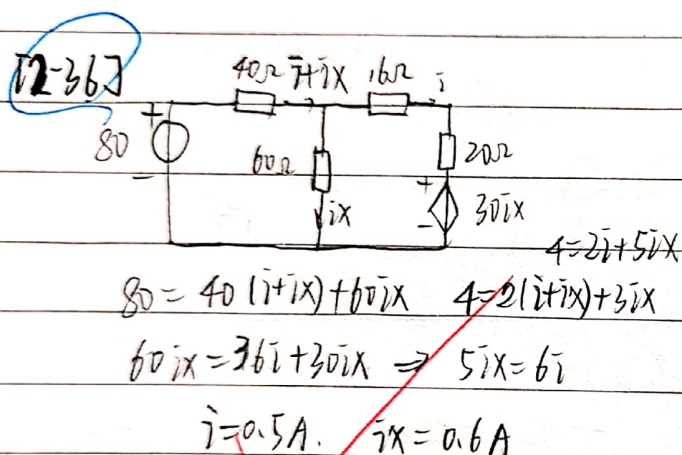 [2-36]
40Ω i+ix 16Ω i
+
80
-
60Ω
ix
20Ω
+
-
30ix
4=2i+5ix
80 = 40(i+ix)+60ix 4=2(i+ix)+3ix
60ix=36i+30ix ⇒ 5ix=6i
i=0.5A. ix=0.6A